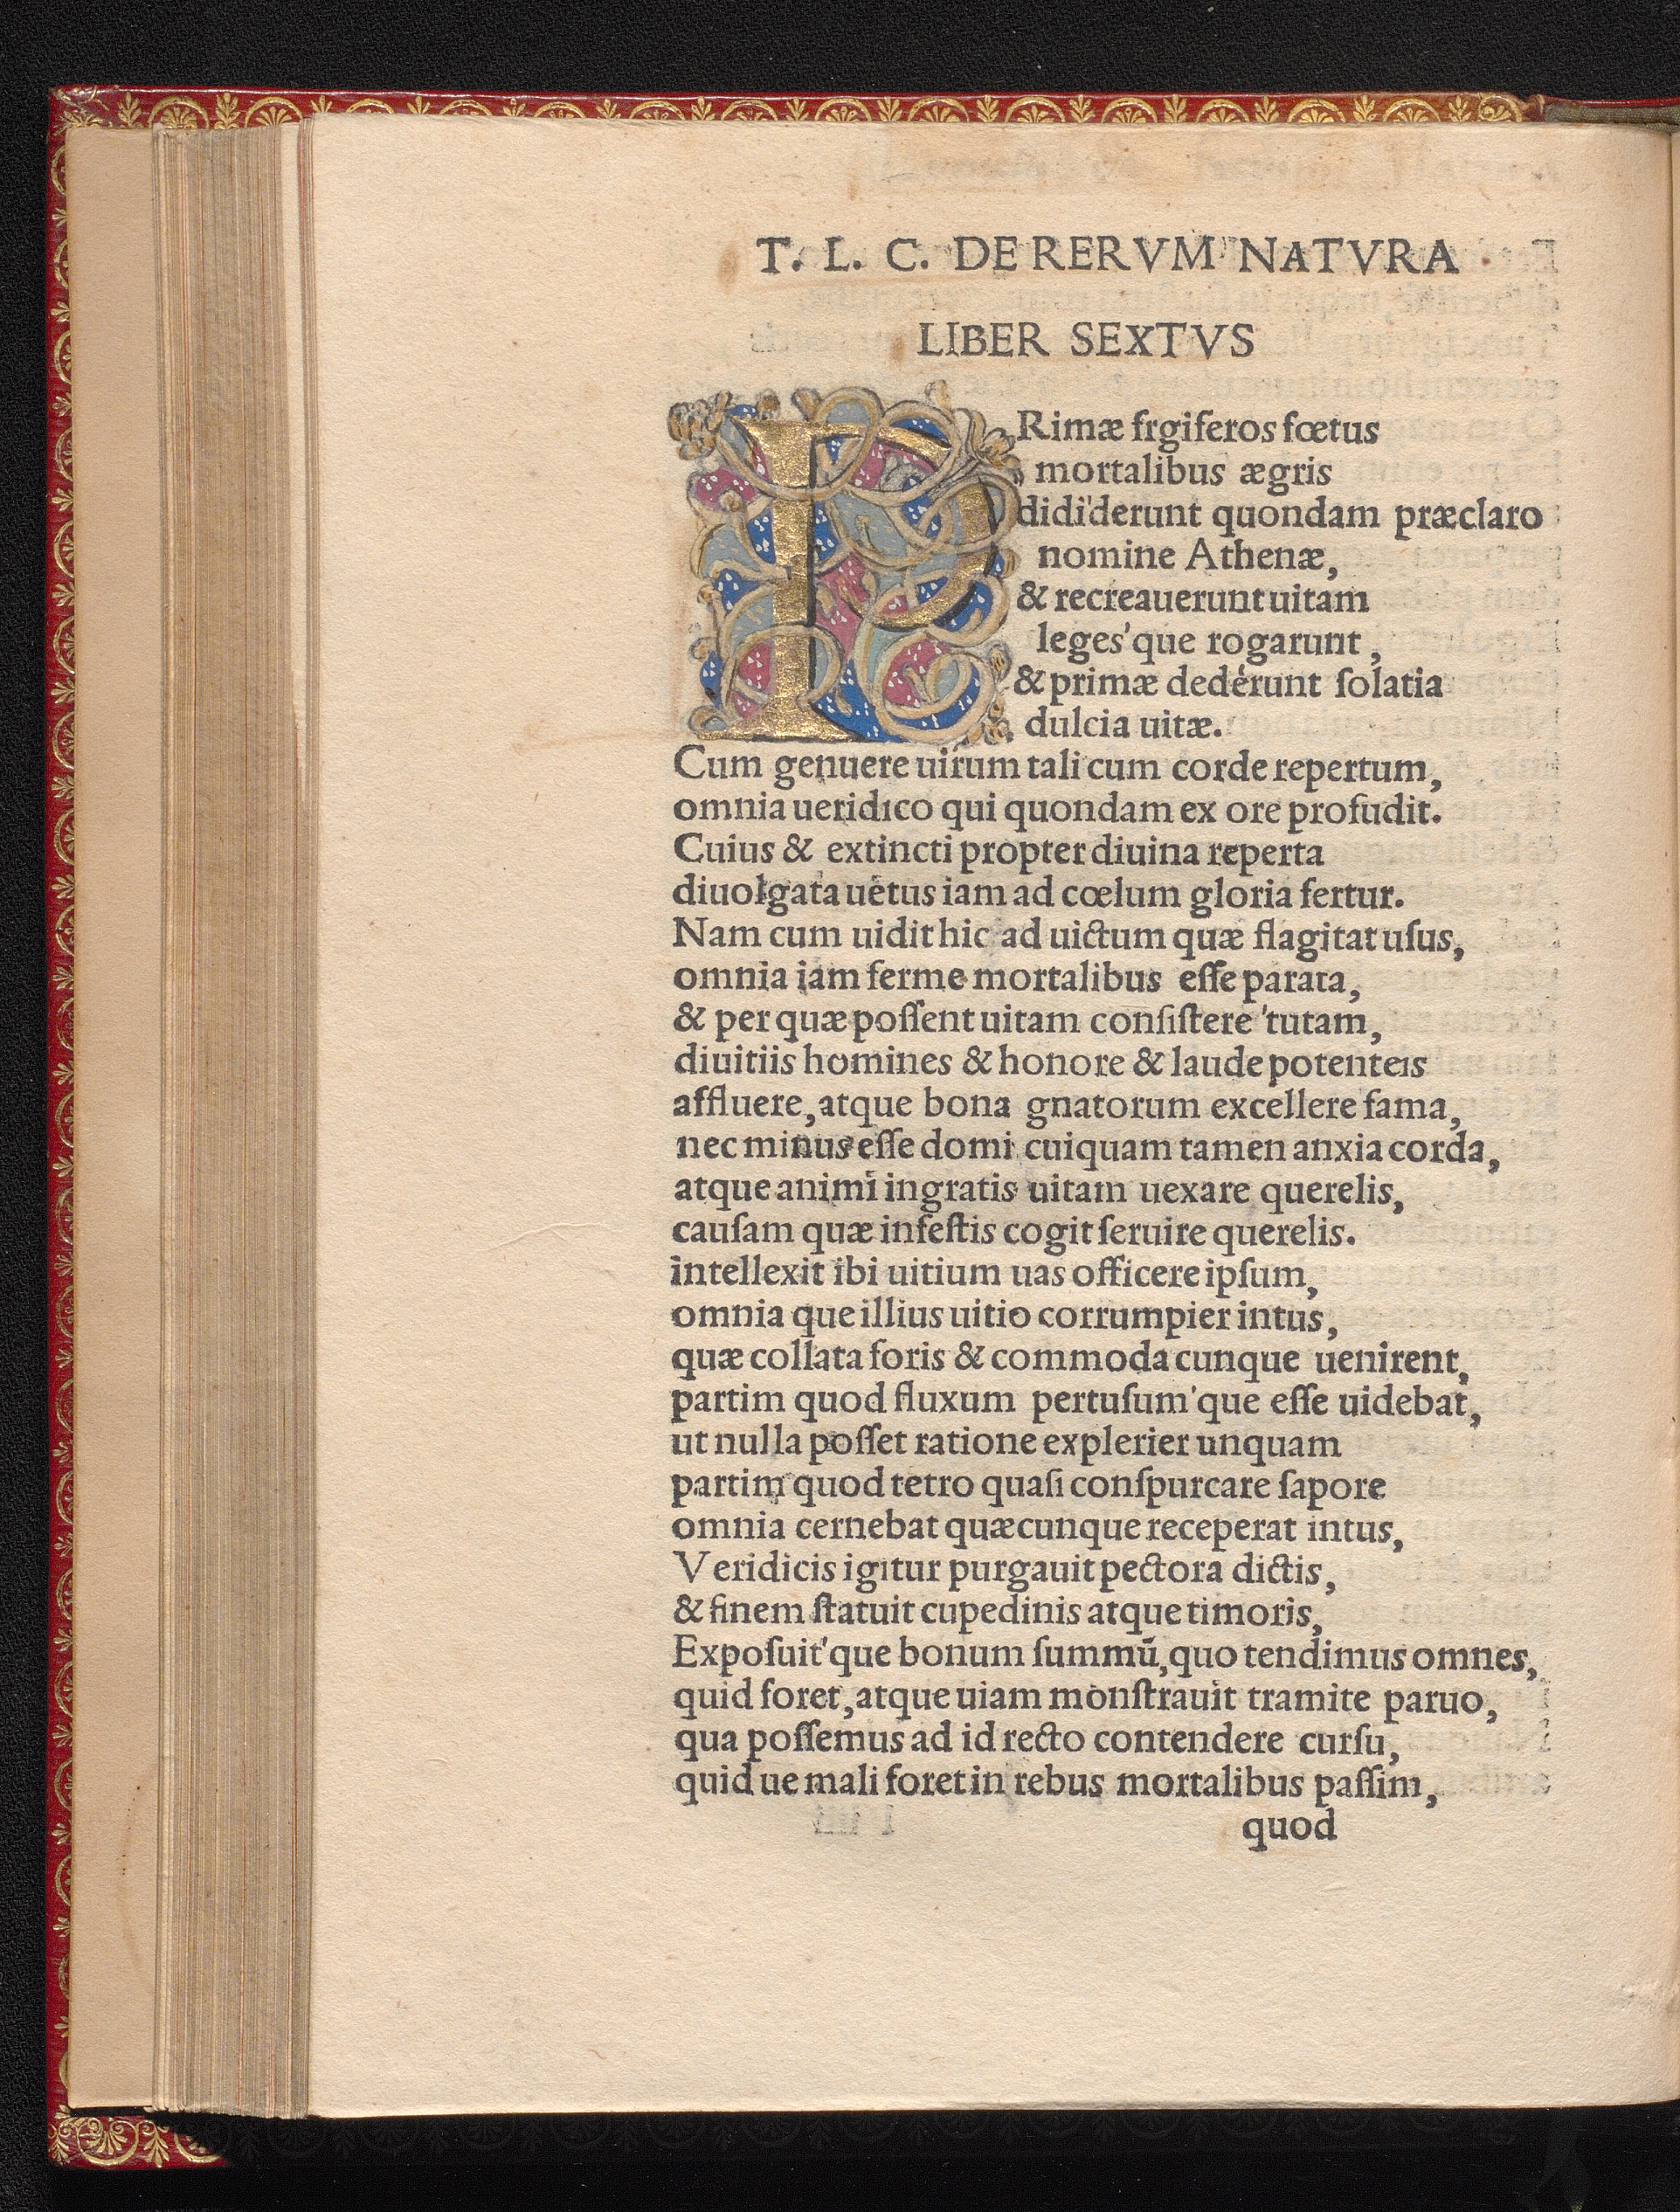 T. L. C. DE RERVM NATVRA
LIBER SEXTVS
PRimæ frgiferos fœtus
mortalibus ægris
didi'derunt quondam præclaro
nomine Athenæ,
& recreauerunt uitam
leges'que rogarunt,
& primæ dedérunt ſolatia
dulcia uitæ.
Cum genuere uirum tali cum corde repertum,
omnia ueridico qui quondam ex ore profudit.
Cuius & extincti propter diuina reperta
diuolgata uetus iam ad cœlum gloria fertur.
Nam cum uidit hic ad uictum quæ flagitat uſus,
omnia iam ferme mortalibus eſſe parata,
& per quæ poſſent uitam conſiſtere 'tutam,
diuitiis homines & honore & laude potenteis
affluere, atque bona gnatorum excellere fama,
nec minus eſſe domi cuiquam tamen anxia corda,
atque animi ingratis uitam uexare querelis,
cauſam quæ infeſtis cogit ſeruire querelis.
intellexit ibi uitium uas officere ipſum,
omnia que illius uitio corrumpier intus,
quæ collata foris & commoda cunque uenirent,
partim quod fluxum pertuſum'que eſſe uidebat,
ut nulla poſſet ratione explerier unquam
partim quod tetro quaſi conſpurcare ſapore
omnia cernebat quæcunque receperat intus,
Veridicis igitur purgauit pectora dictis,
& finem ſtatuit cupedinis atque timoris,
Expoſuit'que bonum ſummū, quo tendimus omnes,
quid foret, atque uiam monſtrauit tramite paruo,
qua poſſemus ad id recto contendere curſu,
quid ue mali foret in rebus mortalibus paſſim,
quod